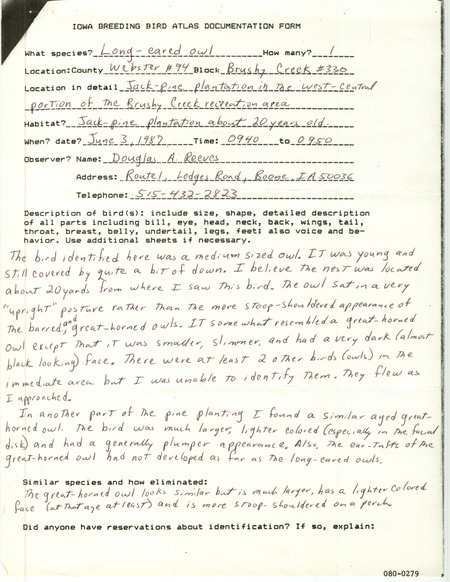 IOWA BREEDING BIRD ATLAS DOCUMENTATION FORM
What species? Long-eared owl How many? 1
Location: County Webster #94 Block Brushy Creek #330
Location in detail Jack-pine plantation in the west-central
portion of the Brushy Creek recreation area
Habitat? Jack-pine plantation about 20 years old.
When? date? June 3, 1987 Time: 0940 to 0950
Observer? Name: Douglas A. Reeves
Address: Route 1, Ledges Road, Boone, IA 50036
Telephone: 515-432-2823
Description of bird(s): include size, shape, detailed description
of all parts including bill, eye, head, neck, back, wings, tail,
throat, breast, belly, undertail, legs, feet; also voice and be-
havior. Use additional sheets if necessary.
The bird identified here was a medium sized owl. IT was young and
still covered by quite a bit of down. I believe the nest was located
about 20 yards from where I saw this bird. The owl sat in a very
"upright" posture rather than the more stoop-shouldered appearance of
the barred and great-horned owls. IT somewhat resembled a great-horned
owl except that it was smaller, slimmer, and had a very dark (almost
black looking) face. There were at least 2 other birds (owls) in the
immediate area but I was unable to identify them. They flew as
I approached.
In another part of the pine planting I found a similar aged great-
horned owl. The bird was much larger, lighter colored (especially in the facial
disk) and had a generally plumper appearance. Also, the ear-tufts of the
great-horned owl had not developed as far as the long-eared owls.
Similar species and how eliminated:
The great-horned owl looks similar but is much larger, has a lighter colored
face (at that age at least) and is more stoop-shouldered on a perch.
Did anyone have reservations about identification? If so, explain:
080-0279